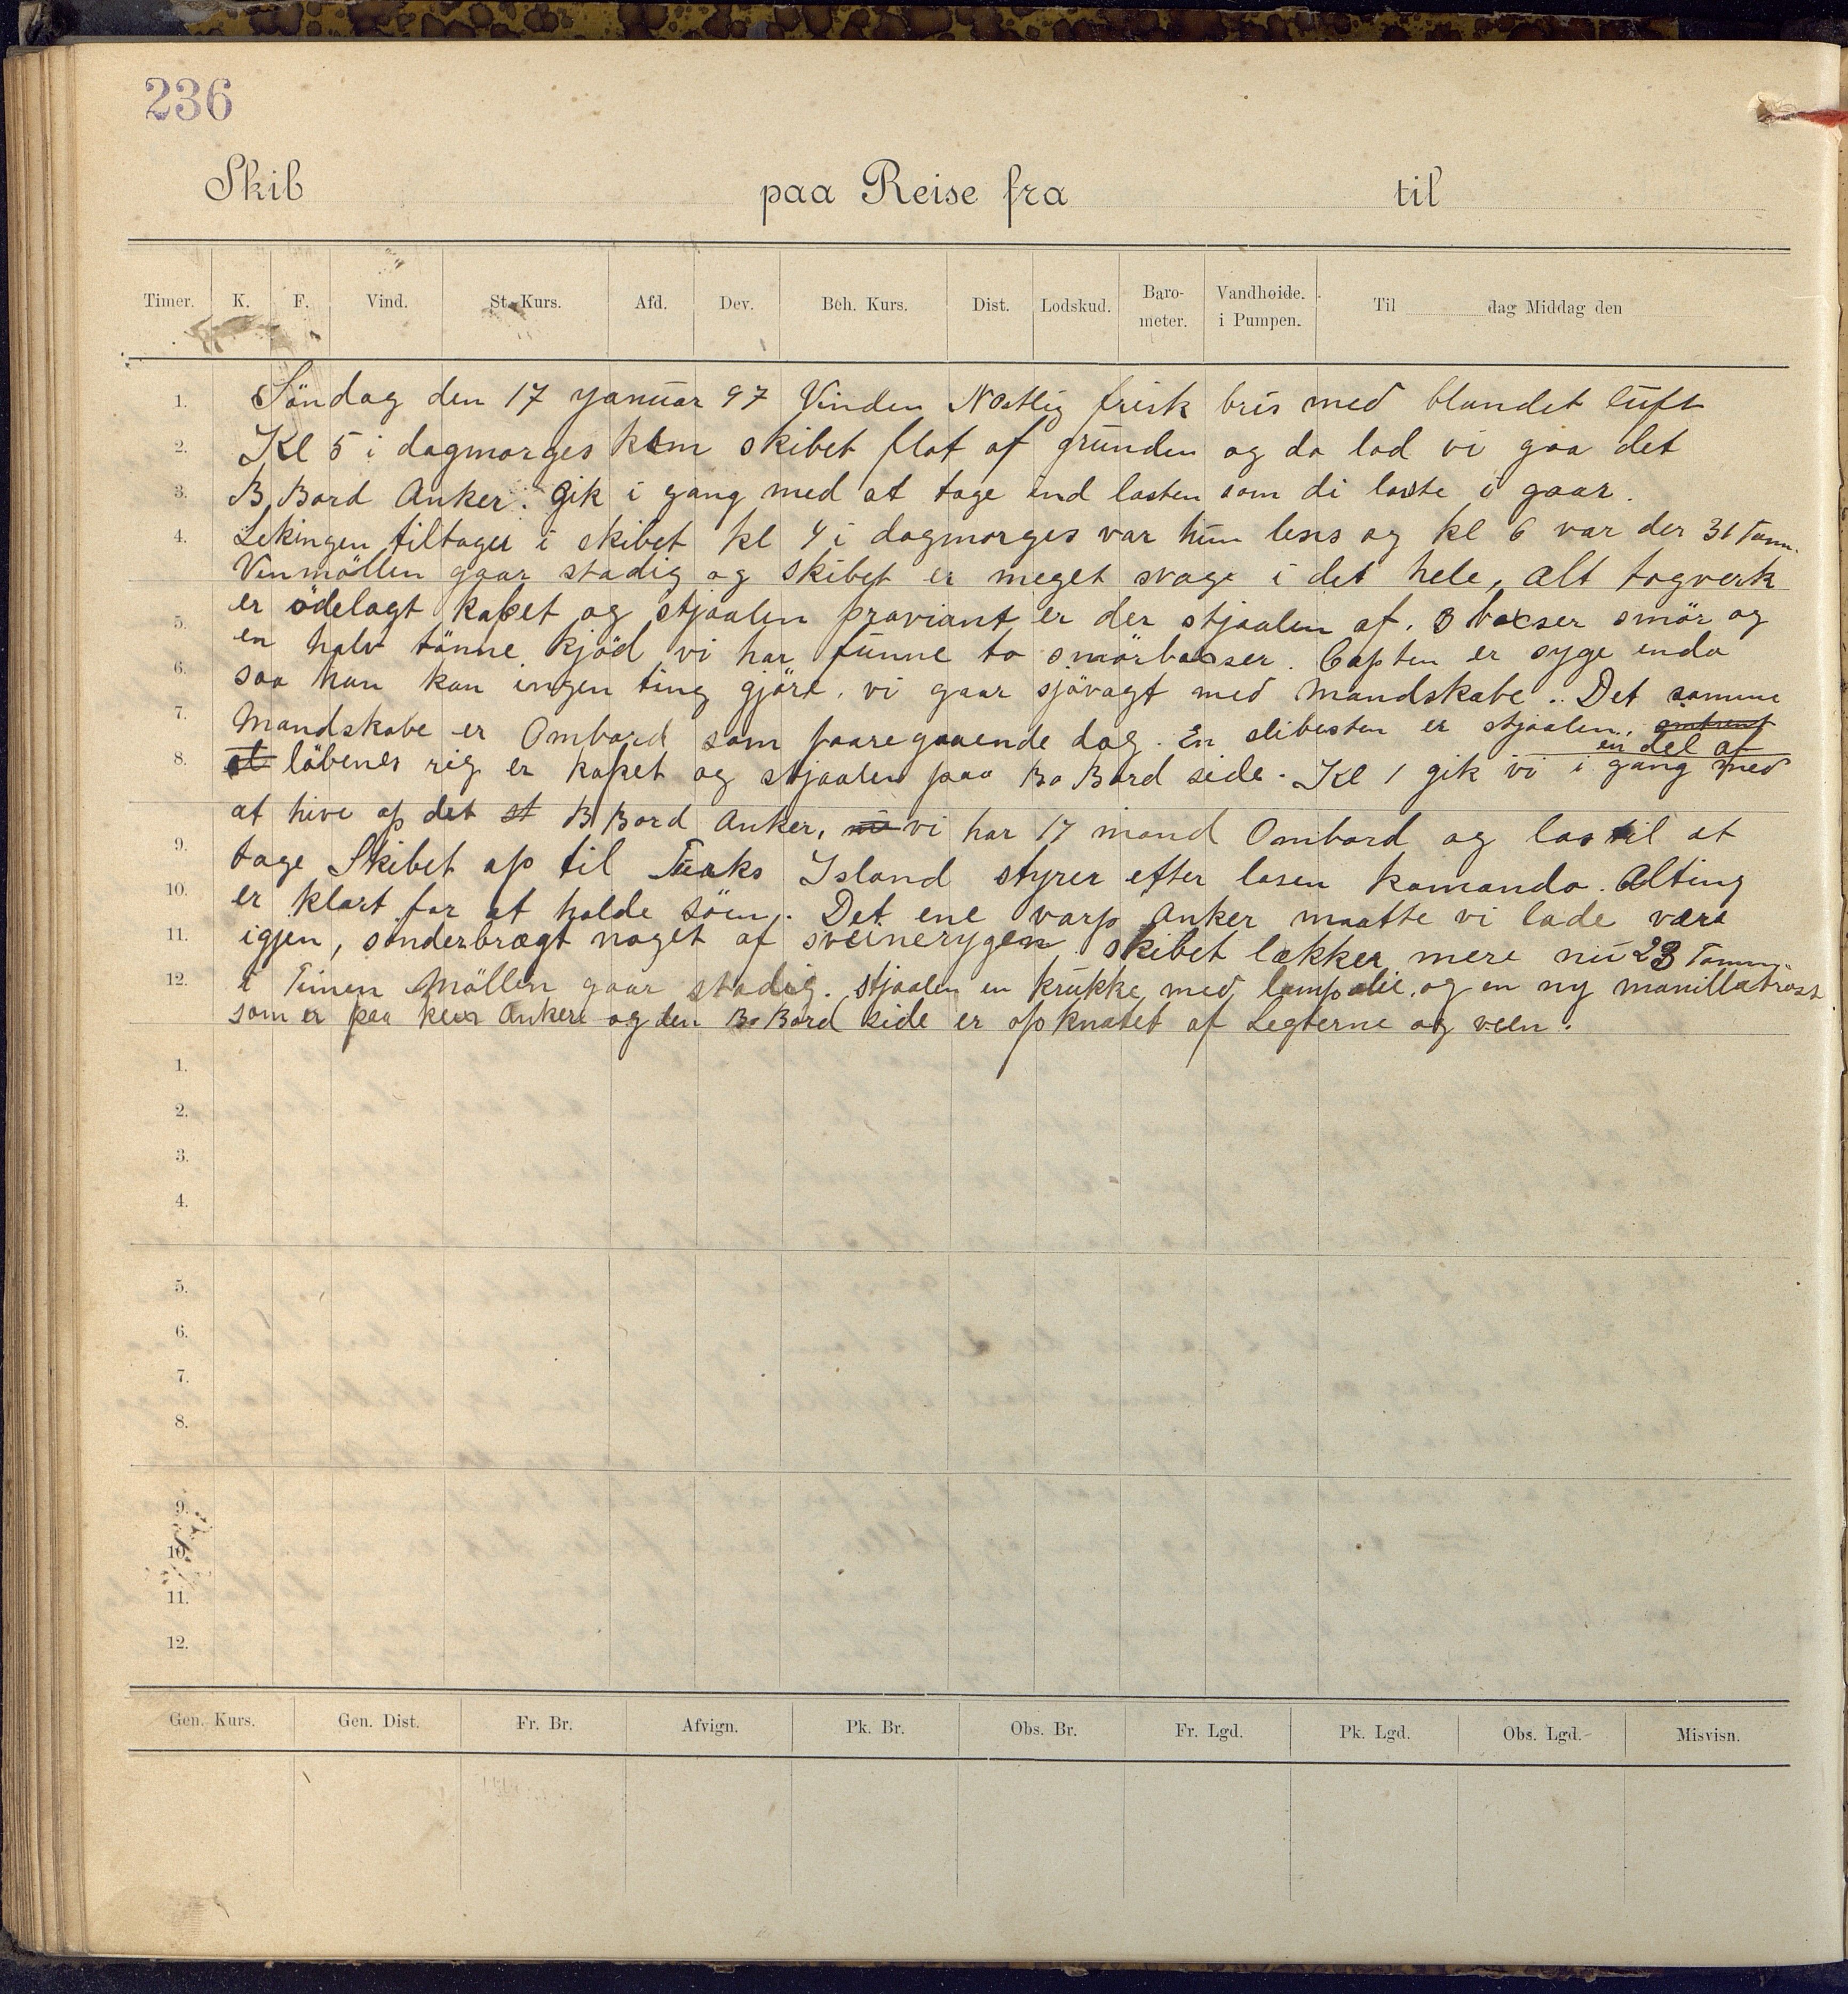 236
Skib paa Reise fra til
Timer. K. F. Vind. St. Kurs. Afd. Dev. Beh. Kurs. Dist. Lodskud. Baro-meter. Vandhøide. i Pumpen. Til dag Middag den
1. Söndag den 17 yanuar 97 Vinden NOstlig frisk bris med blandet luft
2. Kl 5 i dagmorges kom skibet flot af grunden og da lod vi gaa det
3. B Bord Anker. Gik i gang med at tage ind lasten som di loste i gaar.
4. Lekingen tiltager i skibet kl 4 i dagmorges var hun lens og kl 6 var der 31 Tom.
Vinmöllen gaar stadig og skibet er meget svage i det hele, alt togverk
5. er ödelagt kapet og stjaalen praviant er der stjaalen af. 3 bokser smör og
en halv tönne kjöd vi har funne to smörbokser. Capten er syge enda
6. saa han kan ingen ting gjöre. vi gaar sjövagt med Mandskabe. Det samme
7. Mandskabe er Ombord som faaregaaende dag. En slibesten er stjaalen, omtrent
en del af
8. at löbenes rig er kapet og stjaalen paa Ba Bord side. Kl 1 gik vi i gang med
at hive op det st B Bord Anker, vi har 17 mand Ombord og los til at
9. tage Skibet op til Turks Island styrer efter losen komando. Alting
10. er klart for at holde söen. Det ene varp Anker maatte vi lade være
11. igjen, sönderbrægt noget af sveinerygen skibet lækker mere nu 23 Tomm.
12. i Timen Möllen gaar stadig. stjaalen en krukke med lampolie og en ny manillatrost
som er paa Ankere og den Ba Bord side er opknatet af Legterne og veen.
1.
2.
3.
4.
5.
6.
7.
8.
9.
10.
11.
12.
Gen. Kurs. Gen. Dist. Fr. Br. Afvign. Pk. Br. Obs. Br. Fr. Lgd. Pk. Lgd. Obs. Lgd. Misvisn.